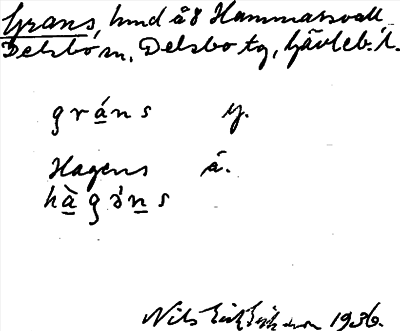 Grans, hmd å8 Hammarsvall
Delsbo sn, Delsbo tg, Gävleb. l.
gráns y.
Hagens ä.
hàgəns
Nils Erik Eriksson 1936.